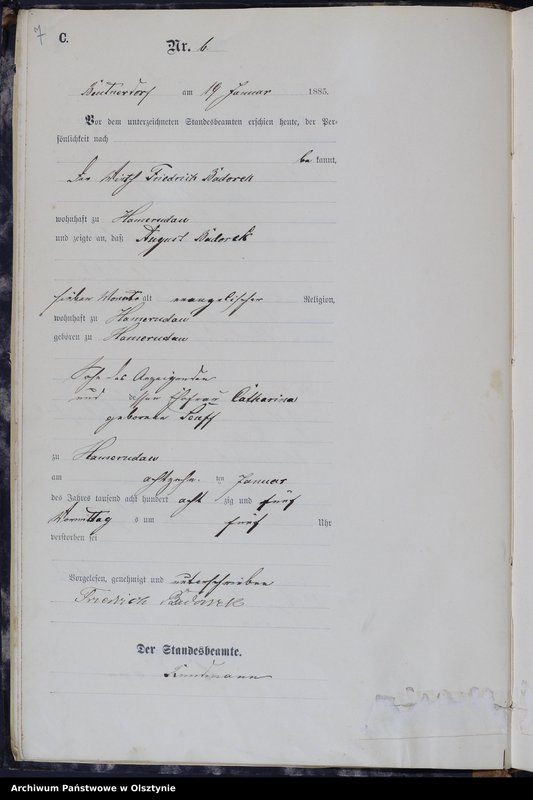 7
C.
Nr. 6
am 19 Januar 1885.
Vor dem unterzeichneten Standesbeamten erschien heute, der Per-
sönlichkeit nach
be kannt,
Der Wirth Friedrich Badorek
wohnhaft zu Hamerudau
und zeigte an, daß August Badorek
sieben Monate alt evangelischer Religion,
wohnhaft zu Hamerudau
geboren zu Hamerudau
Sohn des Anzeigenden
und dessen Ehefrau Catharina
geborene
zu Hamerudau
am achtzehn ten Januar
des Jahres tausend acht hundert acht zig und fünf
Vormittag s um fünf Uhr
verstorben sei
Vorgelesen, genehmigt und unterschrieben
Friedrich Badorek
Der Standesbeamte.
Archiwum Państwowe w Olsztynie